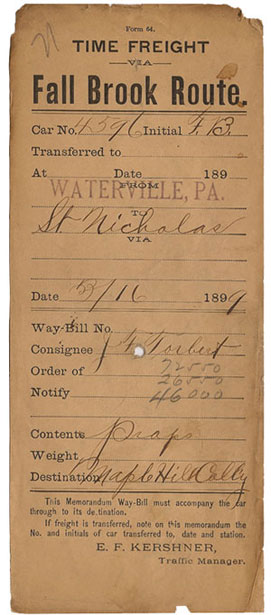 21
Form 64.
TIME FREIGHT
VIA
Fall Brook Route.
Car No. 4596 Initial F.B.
Transferred to
At Date 189
WATERVILLE, PA.
FROM
TO
St Nicholas
VIA
Date 3/16 1899
Way-Bill No.
Consignee J W Torbert
Order of 72550
26550
Notify 46000
Contents Props
Weight
Destination Maple Hill Colly
This Memorandum Way-Bill must accompany the car
through to its destination.
If freight is transferred, note on this memorandum the
No. and initials of car transferred to, date and station.
E. F. KERSHNER,
Traffic Manager.